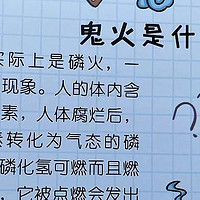 鬼火是什
实际上是磷火，一
现象。人的体内含
素，人体腐烂后，
转化为气态的磷
磷化氢可燃而且燃
，它被点燃会发出